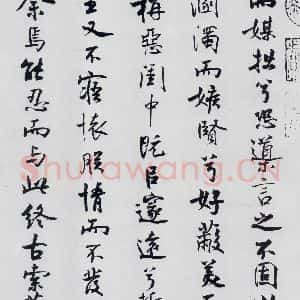 而媒拙兮恐導言之不固
溷濁而嫉賢兮好蔽美
稱惡閨中既㠯邃遠兮
王又不寤懷朕情而不發
余焉能忍而与此終古索
Shufawang.CN